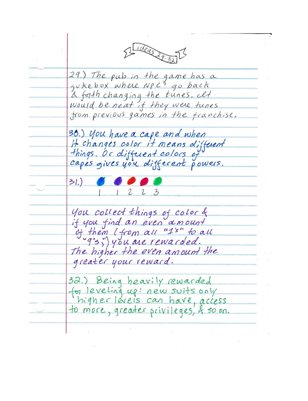 ideas 29-32
29.) The pub in the game has a
jukebox where NPC's go back
& forth changing the tunes. It
would be neat if they were tunes
from previous games in the franchise.
30.) You have a cape and when
it changes color it means different
things. Or different colors of
capes gives you different powers.
31.)
1 1 2 2 3
You collect things of color &
if you find an even amount
of them (from all "1's" to all
"9's,") you are rewarded.
The higher the even amount the
greater your reward.
32.) Being heavily rewarded
for leveling up: new suits only
higher levels can have, access
to more, greater privileges, & so on.